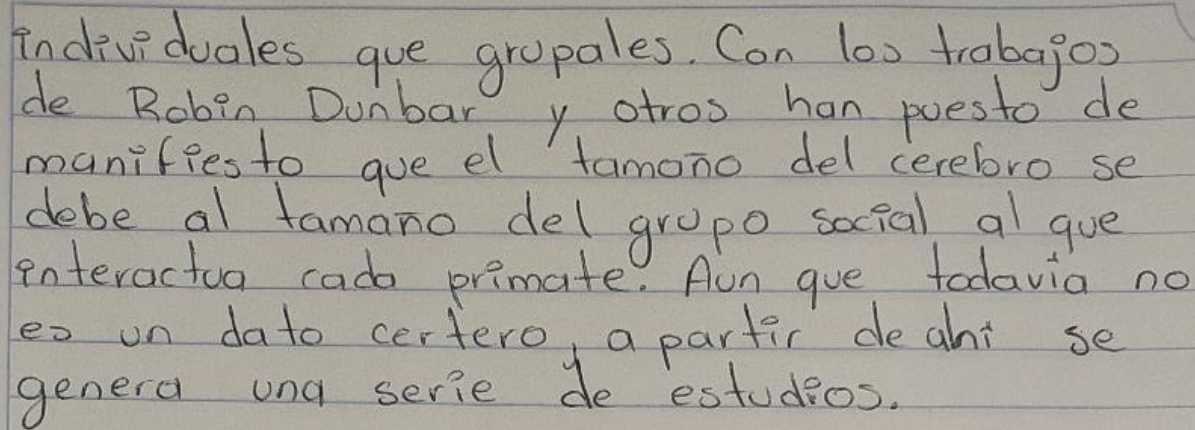 individuales que grupales. Con los trabajos
de Robin Dunbar y otros han puesto de
manifiesto que el tamaño del cerebro se
debe al tamaño del grupo social al que
interactua cada primate. Aun que todavía no
es un dato certero, a partir de ahi se
genera una serie de estudios.